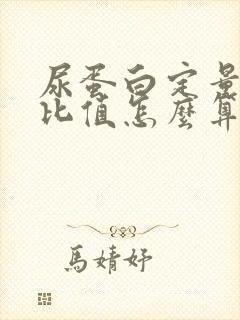 尿蛋白定量
比值怎麼算
馬婧妤